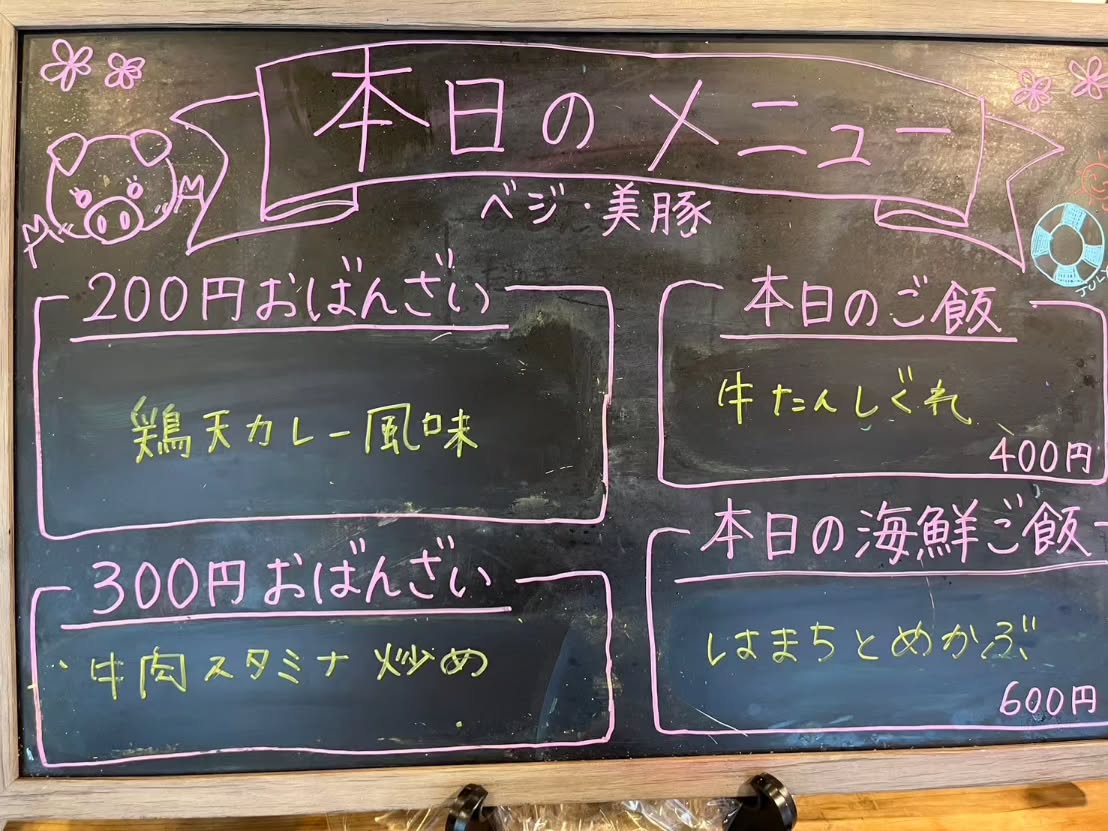 本日のメニュー
ベジ・美豚
200円おばんざい
鶏天カレー風味
300円おばんざい
・牛肉スタミナ炒め
本日のご飯
牛たんしぐれ
400円
本日の海鮮ご飯
はまちとめかぶ
600円